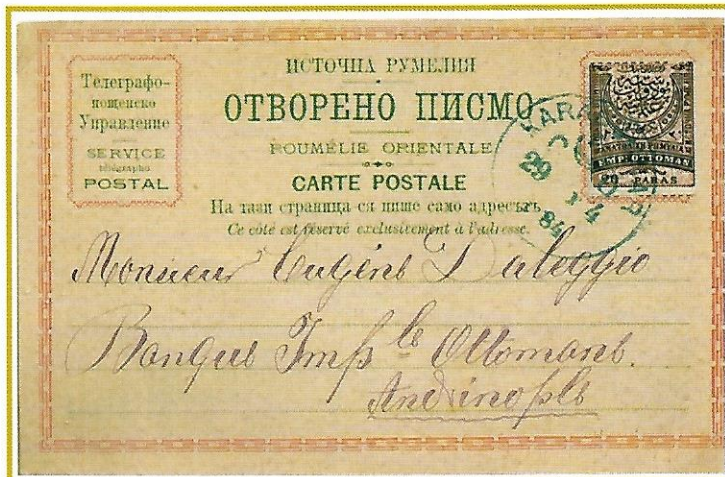 Телеграфо-
пощенско
Управление
SERVICE
télégrapho
POSTAL
ИСТОЧНА РУМЕЛИЯ
ОТВОРЕНО ПИСМО
ROUMÉLIE ORIENTALE
CARTE POSTALE
На тази страница ся пише само адресътъ
Ce côté est réservé exclusitement à l'adresse.
29
84
EMP. OTTOMAN
20 PARAS
Monsieur Eugéne Daleggio
Banque Imp le Ottomane.
Andrinople